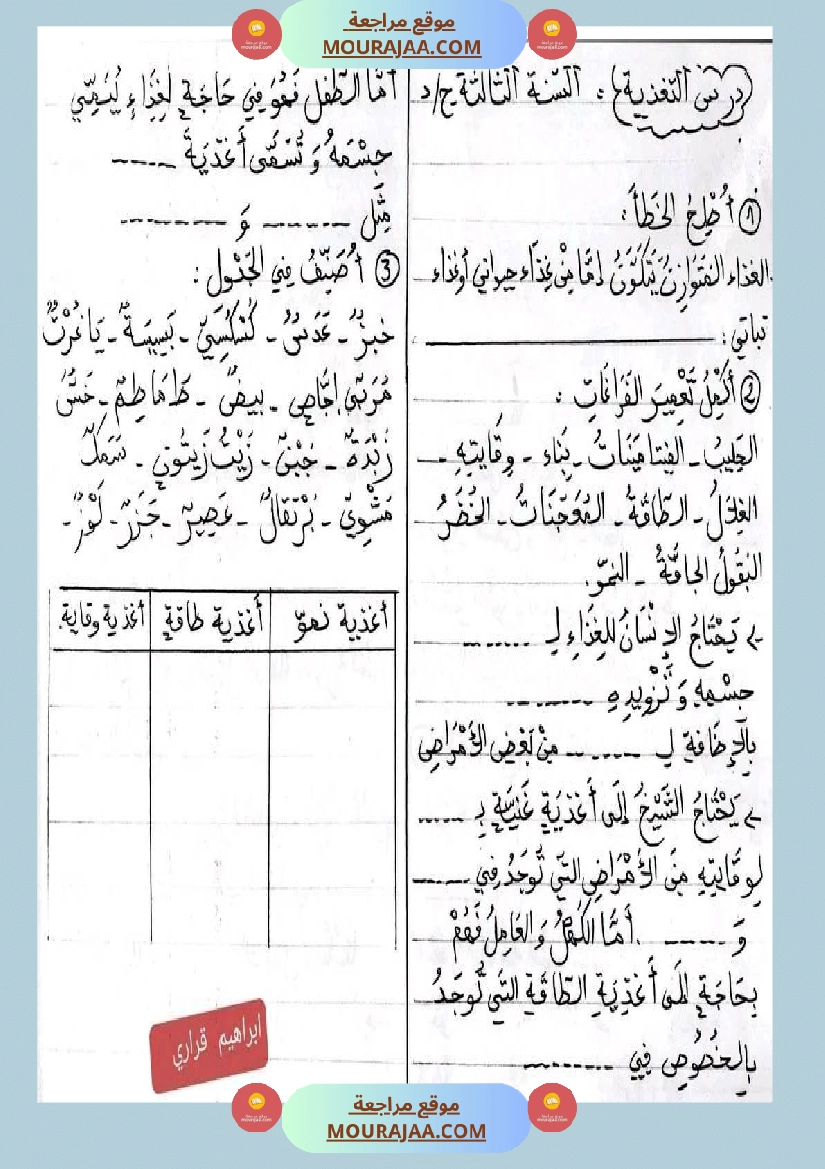 موقع مراجعة
MOURAJAA.COM
درس التغذية: السنة الثالثة ج/د
① أُصْلِحُ الخَطَأَ:
الغذاء المُتَوَازِنُ يَتَكَوَّنُ إمَّا مِنْ غِذَاء حيواني أو غذاء
نباتي:
② أُكْمِلُ تَعْمِيرَ الفَرَاغَاتِ:
الحَلِيبُ - الفيتامينَاتُ - بِنَاء - وِقَايَتِهِ -
الغِلَالُ - الطَّاقَةُ - المُعَجَّنَاتُ - الخُضَرُ
البُقُولُ الجَافَّةُ - النموّ.
يَحْتَاجُ الإِنْسَانُ لِلْغِذَاءِ لِـ ........
جِسْمِهِ وَ تَزْوِيدِهِ ........
بِالإِضَافَةِ لِـ ........ مِنْ بَعْضِ الأَمْرَاضِ
يَحْتَاجُ الشَّيْخُ إِلَى أَغْذِيَةٍ غَنِيَّةٍ بِـ .....
لِوِقَايَتِهِ مِنَ الأَمْرَاضِ التِي تُوجَدُ فِي .....
وَ ...... أَمَّا الكَهْلُ وَ العَامِلُ فَهُمْ
بِحَاجَةٍ إِلَى أَغْذِيَةِ الطَّاقَةِ التِي تُوجَدُ
بِالخُصُوصِ فِي .........
أمَّا الطِّفْلُ فَهُوَ فِي حَاجَةٍ لِغِذَاءٍ يُنَمِّي
جِسْمَهُ وَ تُسَمَّى أَغْذِيَةَ .....
مِثْل ....... وَ ........
③ أُصَنِّفُ فِي الجَدْوَلِ:
خبزٌ - عَدَسٌ - كُسْكُسِيّ - بَسِيسَةٌ - يَاغُرْتٌ
مُرَبَّى إِجَّاصٍ - بيضٌ - طَمَاطِمٌ - خَسٌّ
زُبْدَةٌ - جُبْنٌ - زَيْتُ زَيْتُونٍ - سَمَكٌ
مَشْوِيّ - بُرْتقَالٌ - عَصِيرٌ - جَزَرٌ - لَوْزٌ -
أغذية نموّ
أَغذية طاقةٍ
أغذية وقاية
ابراهيم قراري
موقع مراجعة
MOURAJAA.COM